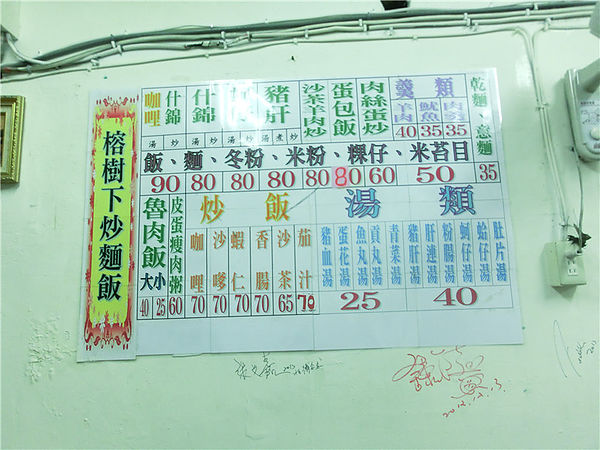 榕樹下炒麵飯
咖哩什錦
什錦
豬肝
沙茶羊肉炒
蛋包飯
肉絲蛋炒
羹類
羊肉 40
魷魚 35
肉羹 35
乾麵、意麵 35
湯 炒 湯 炒 湯 炒 湯 煮 炒
飯、麵、冬粉、米粉、粿仔、米苔目
90 80 80 80 80 80 60 50
魯肉飯
大 小
40 25
皮蛋瘦肉粥
60
炒飯
咖哩 70
沙嗲 70
蝦仁 70
香腸 70
沙茶 65
茄汁 70
湯類
豬血湯
蛋花湯
魚丸湯
貢丸湯
青菜湯
25
豬肝湯
肝連湯
粉腸湯
蚵仔湯
蛤仔湯
肚片湯
40